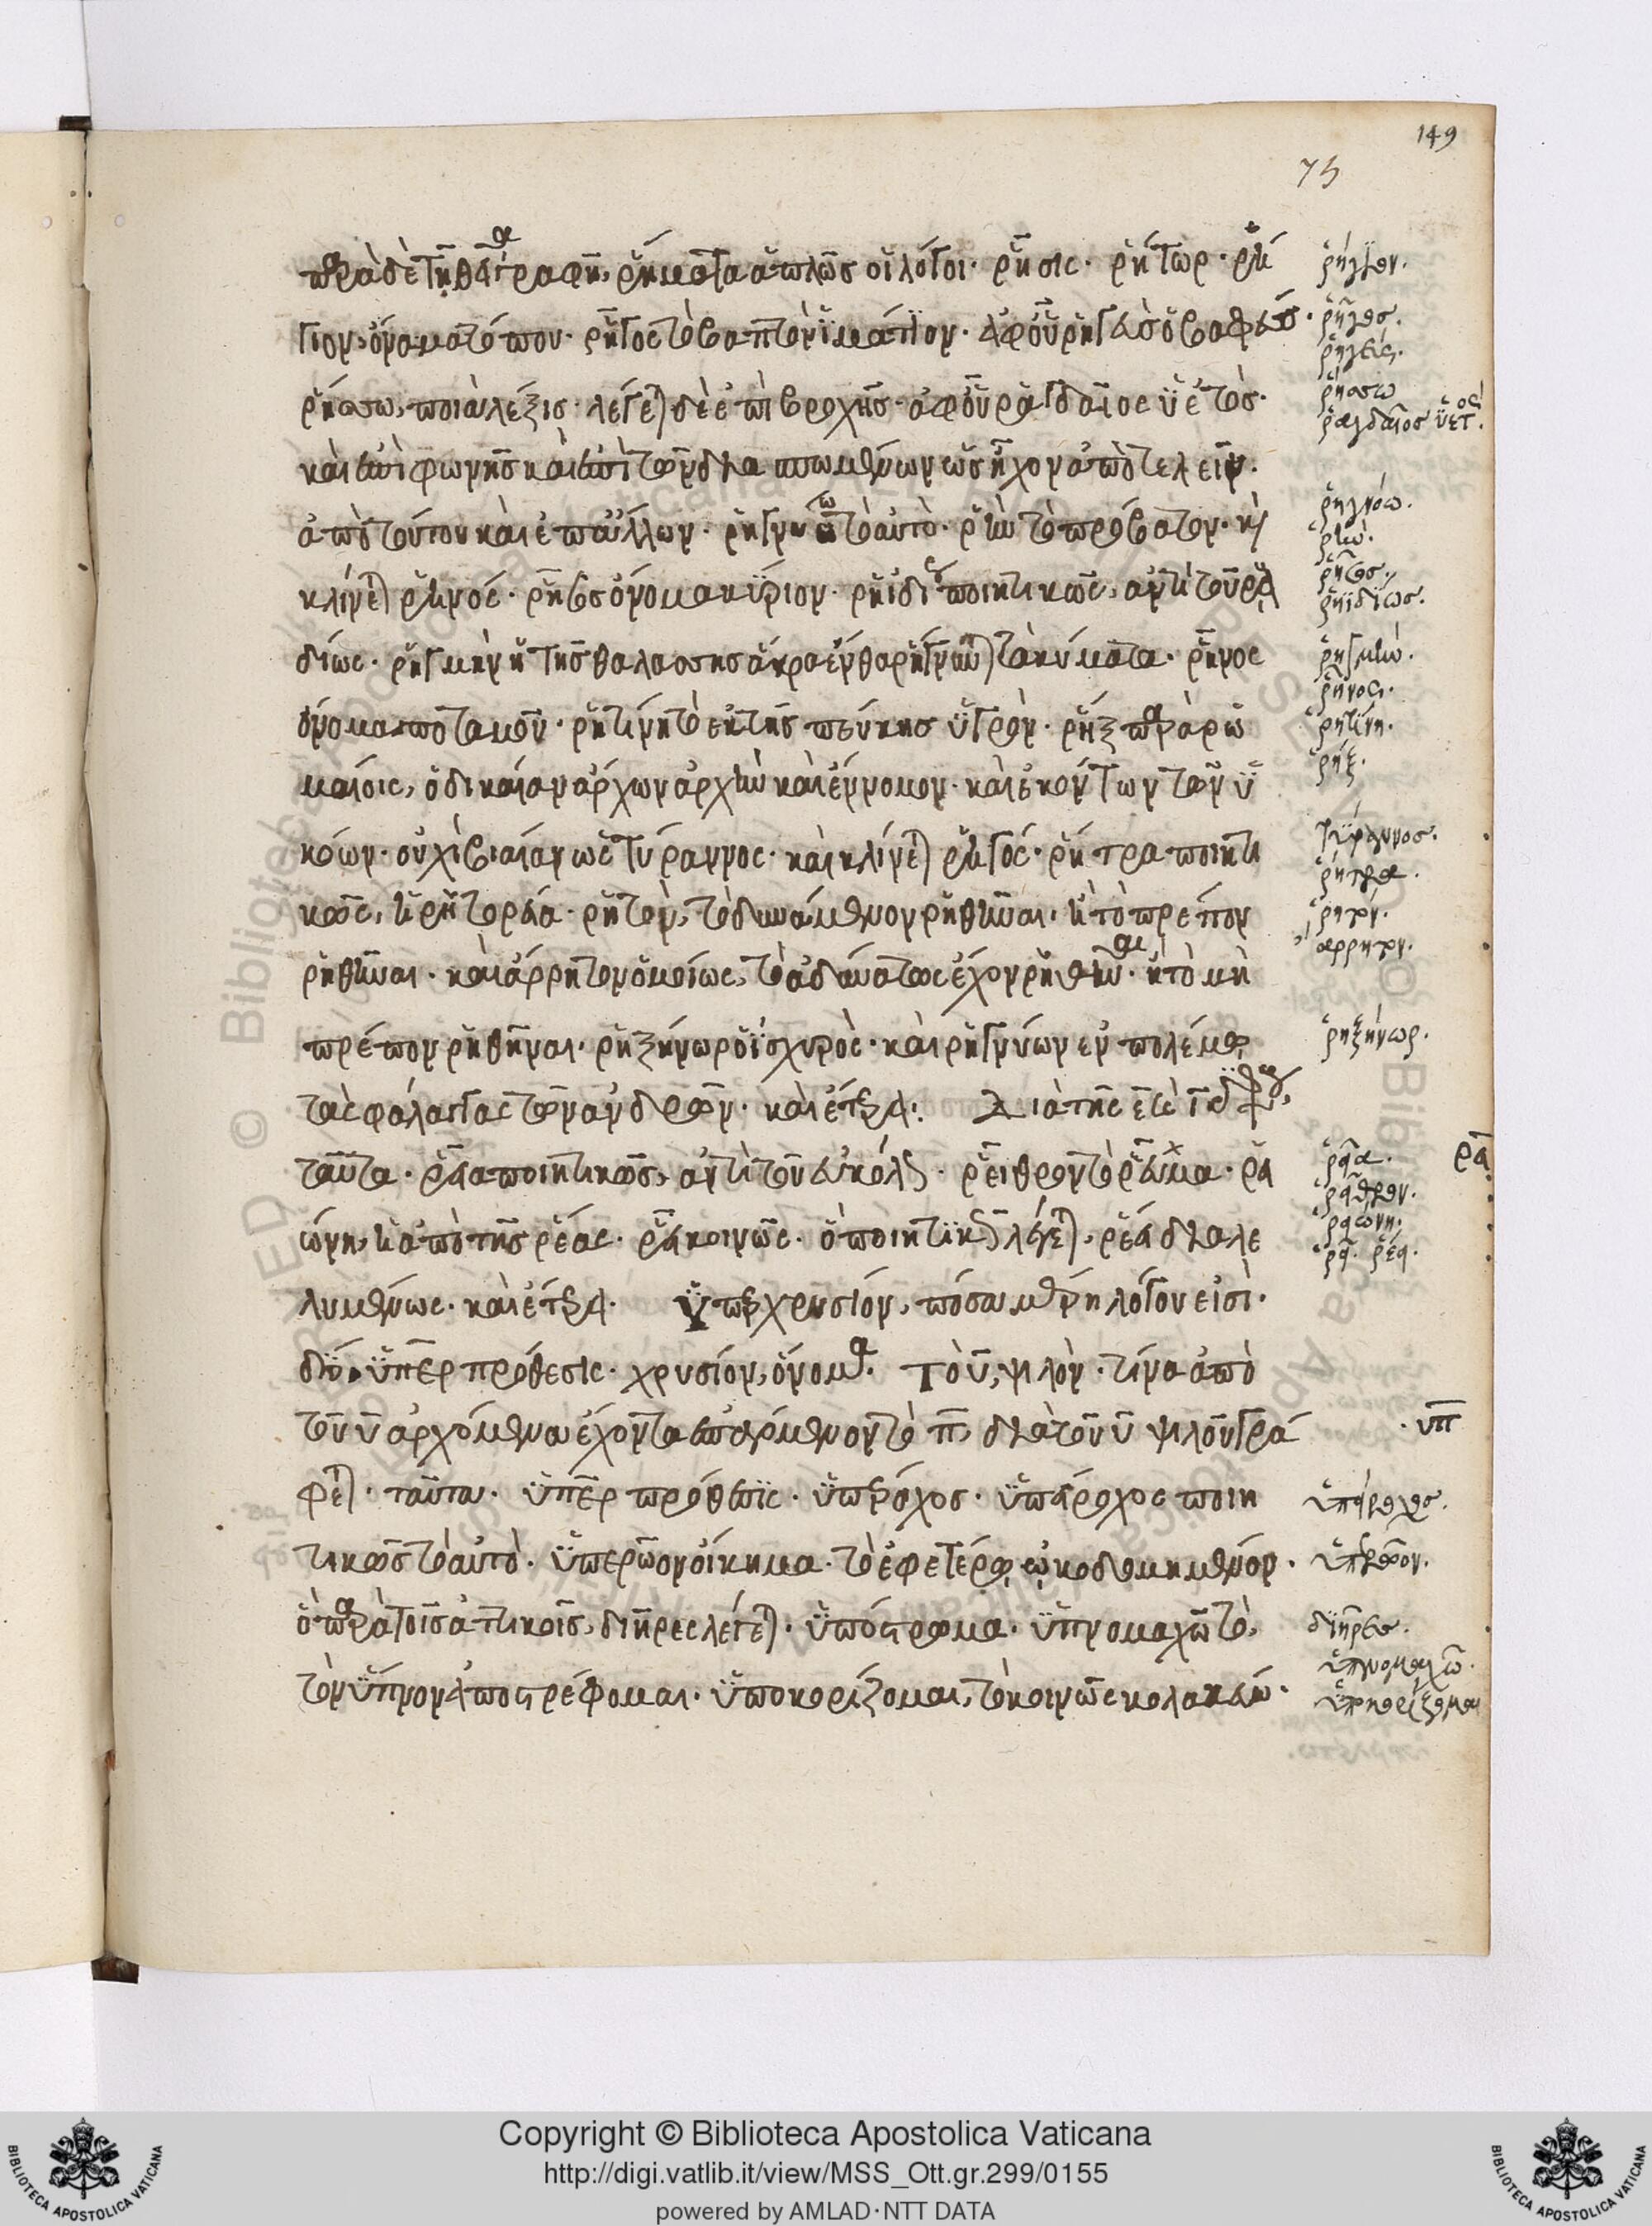 149
75
παρὰ δὲ τῆ θεία γραφῆ, ῥήματα ἁπλῶς οἱ λόγοι· ῥῆσις· ῥήτωρ· ῥή
γιον, ὄνομα τόπου· ῥῆγος τὸ βαπτὸν ἱμάτιον· ἀφοῦ ῥηγεὺς ὁ βαφεύς·
ῥήσσω, ποιὰ λέξις· λέγεται δὲ ἐπὶ βροχῆς· ἀφοῦ ῥαγδαῖος ὑετὸς·
καὶ ἐπὶ φωνῆς καὶ ἐπὶ τῶν ὡς ἦχον ἀποτελεῖν·
ἀπὸ τούτου καὶ ἐπ' ἄλλων· ῥηγνύω τὸ αὐτὸ· ῥὴν τὸ πρόβατον· καὶ
κλίνεται ῥηνός· ῥῆσος ὄνομα κύριον· ῥηϊδίως ποιητικῶς, ἀντὶ τοῦ ῥᾳ
δίως· ῥηγμὴν ἡ τῆς θαλάσσης ἄκρα ἔνθα ῥήγνυνται τὰ κύματα· ῥῆνος
ὄνομα ποταμοῦ· ῥητίνη τὸ ἐκ τῆς πεύκης ὑγρὸν· ῥὴξ παρὰ ῥω
μαίοις, ὁ δικαίαν ἄρχων ἀρχὴν καὶ ἔννομον· καὶ ἑκόντων τῶν ὑ
κόων· οὐχὶ βιαίαν ὡς τύραννος· καὶ κλίνεται ῥηγός· ῥήτρα ποιητι
κῶς, ἡ ῥητορεία· ῥητὸν, τὸ δυνάμενον ῥηθῆναι· ἢ τὸ πρέπον
ῥηθῆναι· καὶ ἄρρητον ὁμοίως, τὸ ἀδυνάτως ἔχον ῥηθῆναι· ἢ τὸ μὴ
πρέπον ῥηθῆναι· ῥηξήνωρ ὁ ἰσχυρὸς· καὶ ῥηγνύων ἐν πολέμῳ
τὰς φάλαγγας τῶν ἀνδρῶν· καὶ ἕτερα: Διὰ τῆς
ταῦτα· ῥεῖα ποιητικῶς, ἀντὶ τοῦ εὐκόλως· ῥεῖθρον τὸ ῥεῦμα· ῥει
ώνη, ἡ ἀπὸ τῆς ῥέας· ῥεῖα κοινῶς· ὃ ποιητικῶς λέγεται, ῥέα διαλε
λυμένως· καὶ ἕτερα· Ὑπὲρ χρυσίον, πόσα μέρη λόγου εἰσὶ·
δύο· ὑπὲρ πρόθεσις· χρυσίον, ὄνομα· τὸ υ, ψιλὸν· τίνα ἀπὸ
τοῦ υ ἀρχόμενα ἔχοντα ἐπερχόμενον τὸ π, διὰ τοῦ υ ψιλοῦ γρά
φεται· ταῦτα· ὑπὲρ πρόθεσις· ὑπέροχος· ὑπείροχος ποιη
τικῶς τὸ αὐτὸ· ὑπερῶον οἴκημα· τὸ ἐφ' ἑτέρῳ ᾠκοδομημένον·
ὃ παρὰ τοῖς ἀττικοῖς, διῆρες λέγεται· ὑπόστρωμα· ὑπνομαχῶ τὸ,
τὸν ὕπνον ἀποστρέφομαι· ὑποκορίζομαι, τὸ κοινῶς κολακεύω·
ῥήγιον.
ῥῆγος.
ῥηγεύς.
ῥήσσω
ῥαγδαῖος ὑετός.
ῥηγνύω.
ῥήν.
ῥῆσος.
ῥηϊδίως.
ῥηγμήν.
ῥῆνος.
ῥητίνη.
ῥήξ.
τύραννος.
ῥήτρα.
ῥητόν.
ἄρρητον.
ῥηξήνωρ.
ῥει
ῥεῖα.
ῥεῖθρον.
ῥειώνη.
ῥεῖα. ῥέα.
υπ
ὑπείροχος.
ὑπερῶον.
διῆρες.
ὑπνομαχῶ.
ὑποκορίζομαι
Copyright © Biblioteca Apostolica Vaticana
http://digi.vatlib.it/view/MSS_Ott.gr.299/0155
powered by AMLAD·NTT DATA
BIBLIOTECA APOSTOLICA VATICANA
BIBLIOTECA APOSTOLICA VATICANA